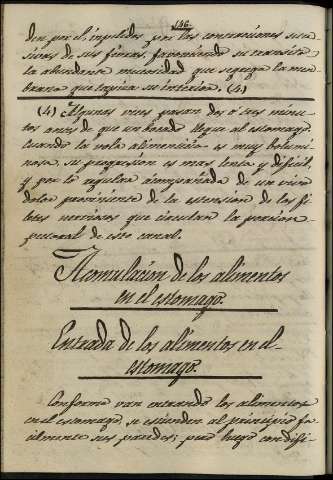 146.
den por él, impelidos por las contracciones suce-
sivas de sus fibras, favoreciendo su transito
la abundante mucosidad que segrega la mem-
brana que tapiza su interior. (4)
(4) Algunas veces pasan dos ó tres minu-
tos antes de que un bocado llegue al estomago.
Cuando la bola alimenticia es muy bolumi-
nosa, su progresion es mas lenta y dificil,
y por lo regular acompañada de un vivo
dolor proviniente de la estension de los fi-
letes nerviosos que circulan la porcion
pectoral de este canal.
Acomulacion de los alimentos
en el estomago.
Entrada de los alimentos en el
estomago.
Conforme van entrando los alimentos
en el estomago, se estienden al principio fa-
cilmente sus paredes; pero luego con difi-